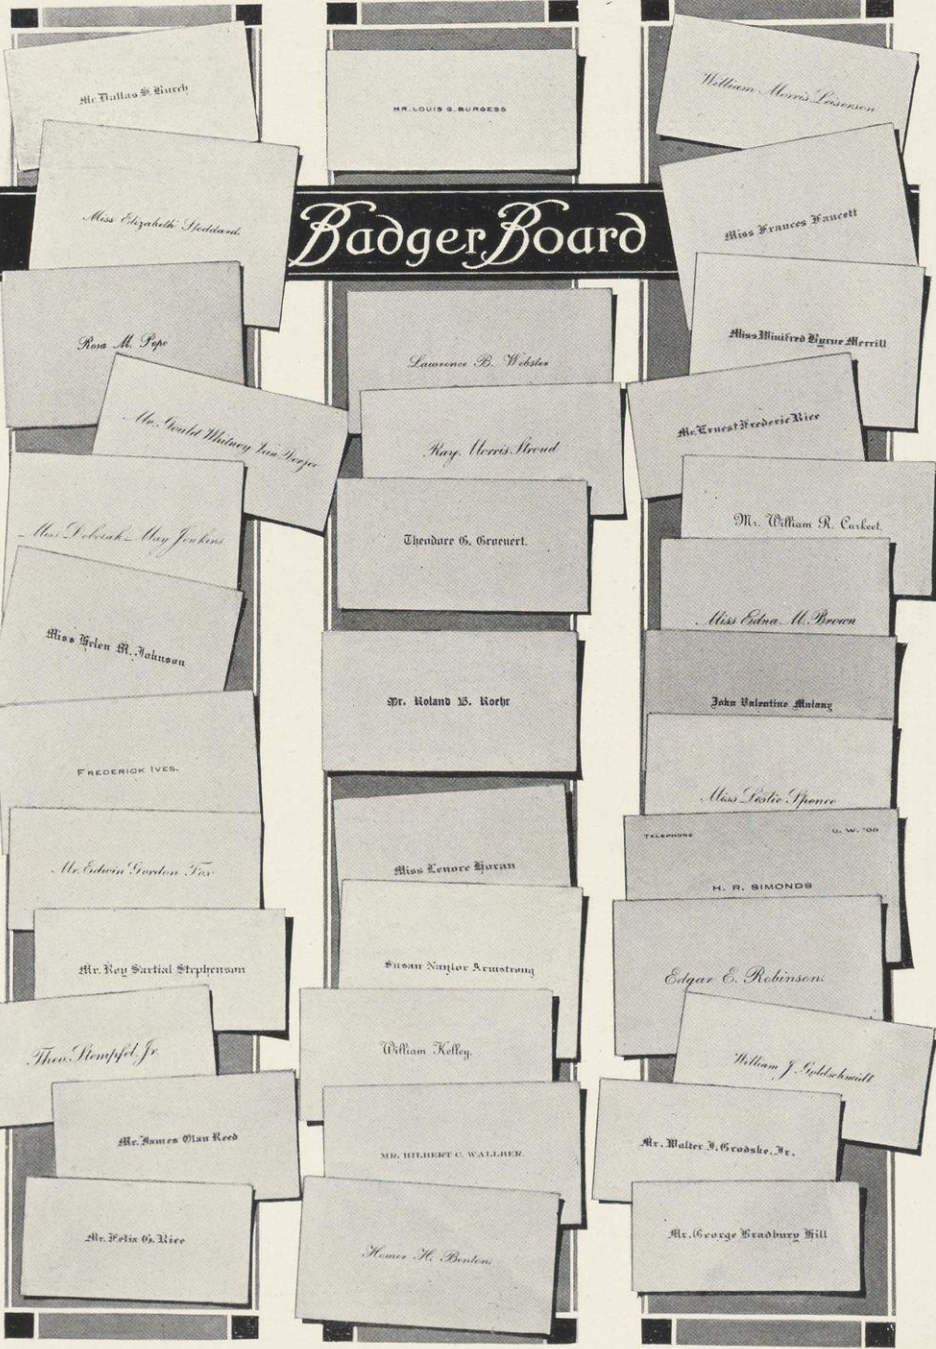 Mr. Dallas S. Burch
Miss Elizabeth Stoddard.
Rosa M. Pope
Mr. Gould Whitney Van Derzee
Miss Deborah May Jenkins
Miss Helen M. Johnson
FREDERICK IVES.
Mr. Edwin Gordon Fox
Mr. Roy Sartial Stephenson
Theo. Stempfel, Jr.
Mr. James Olan Reed
Mr. Felix G. Rice
MR. LOUIS G. BURGESS
Badger Board
Lawrence B. Webster
Ray Morris Stroud
Theodore G. Groenert.
Mr. Roland B. Roehr
Miss Lenore Horan
Susan Naylor Armstrong
William Kelley.
MR. HILBERT C. WALLBER.
Homer H. Benton.
William Morris Leiserson
Miss Frances Faucett
Miss Winifred Byrne Merrill
Mr. Ernest Frederic Rice
Mr. William R. Curkeet.
Miss Edna M. Brown
John Valentine Mulany
Miss Leslie Spence
TELEPHONE
U. W. '09
H. R. SIMONDS
Edgar E. Robinson.
William J. Goldschmidt
Mr. Walter J. Grodske, Jr.
Mr. George Bradbury Hill